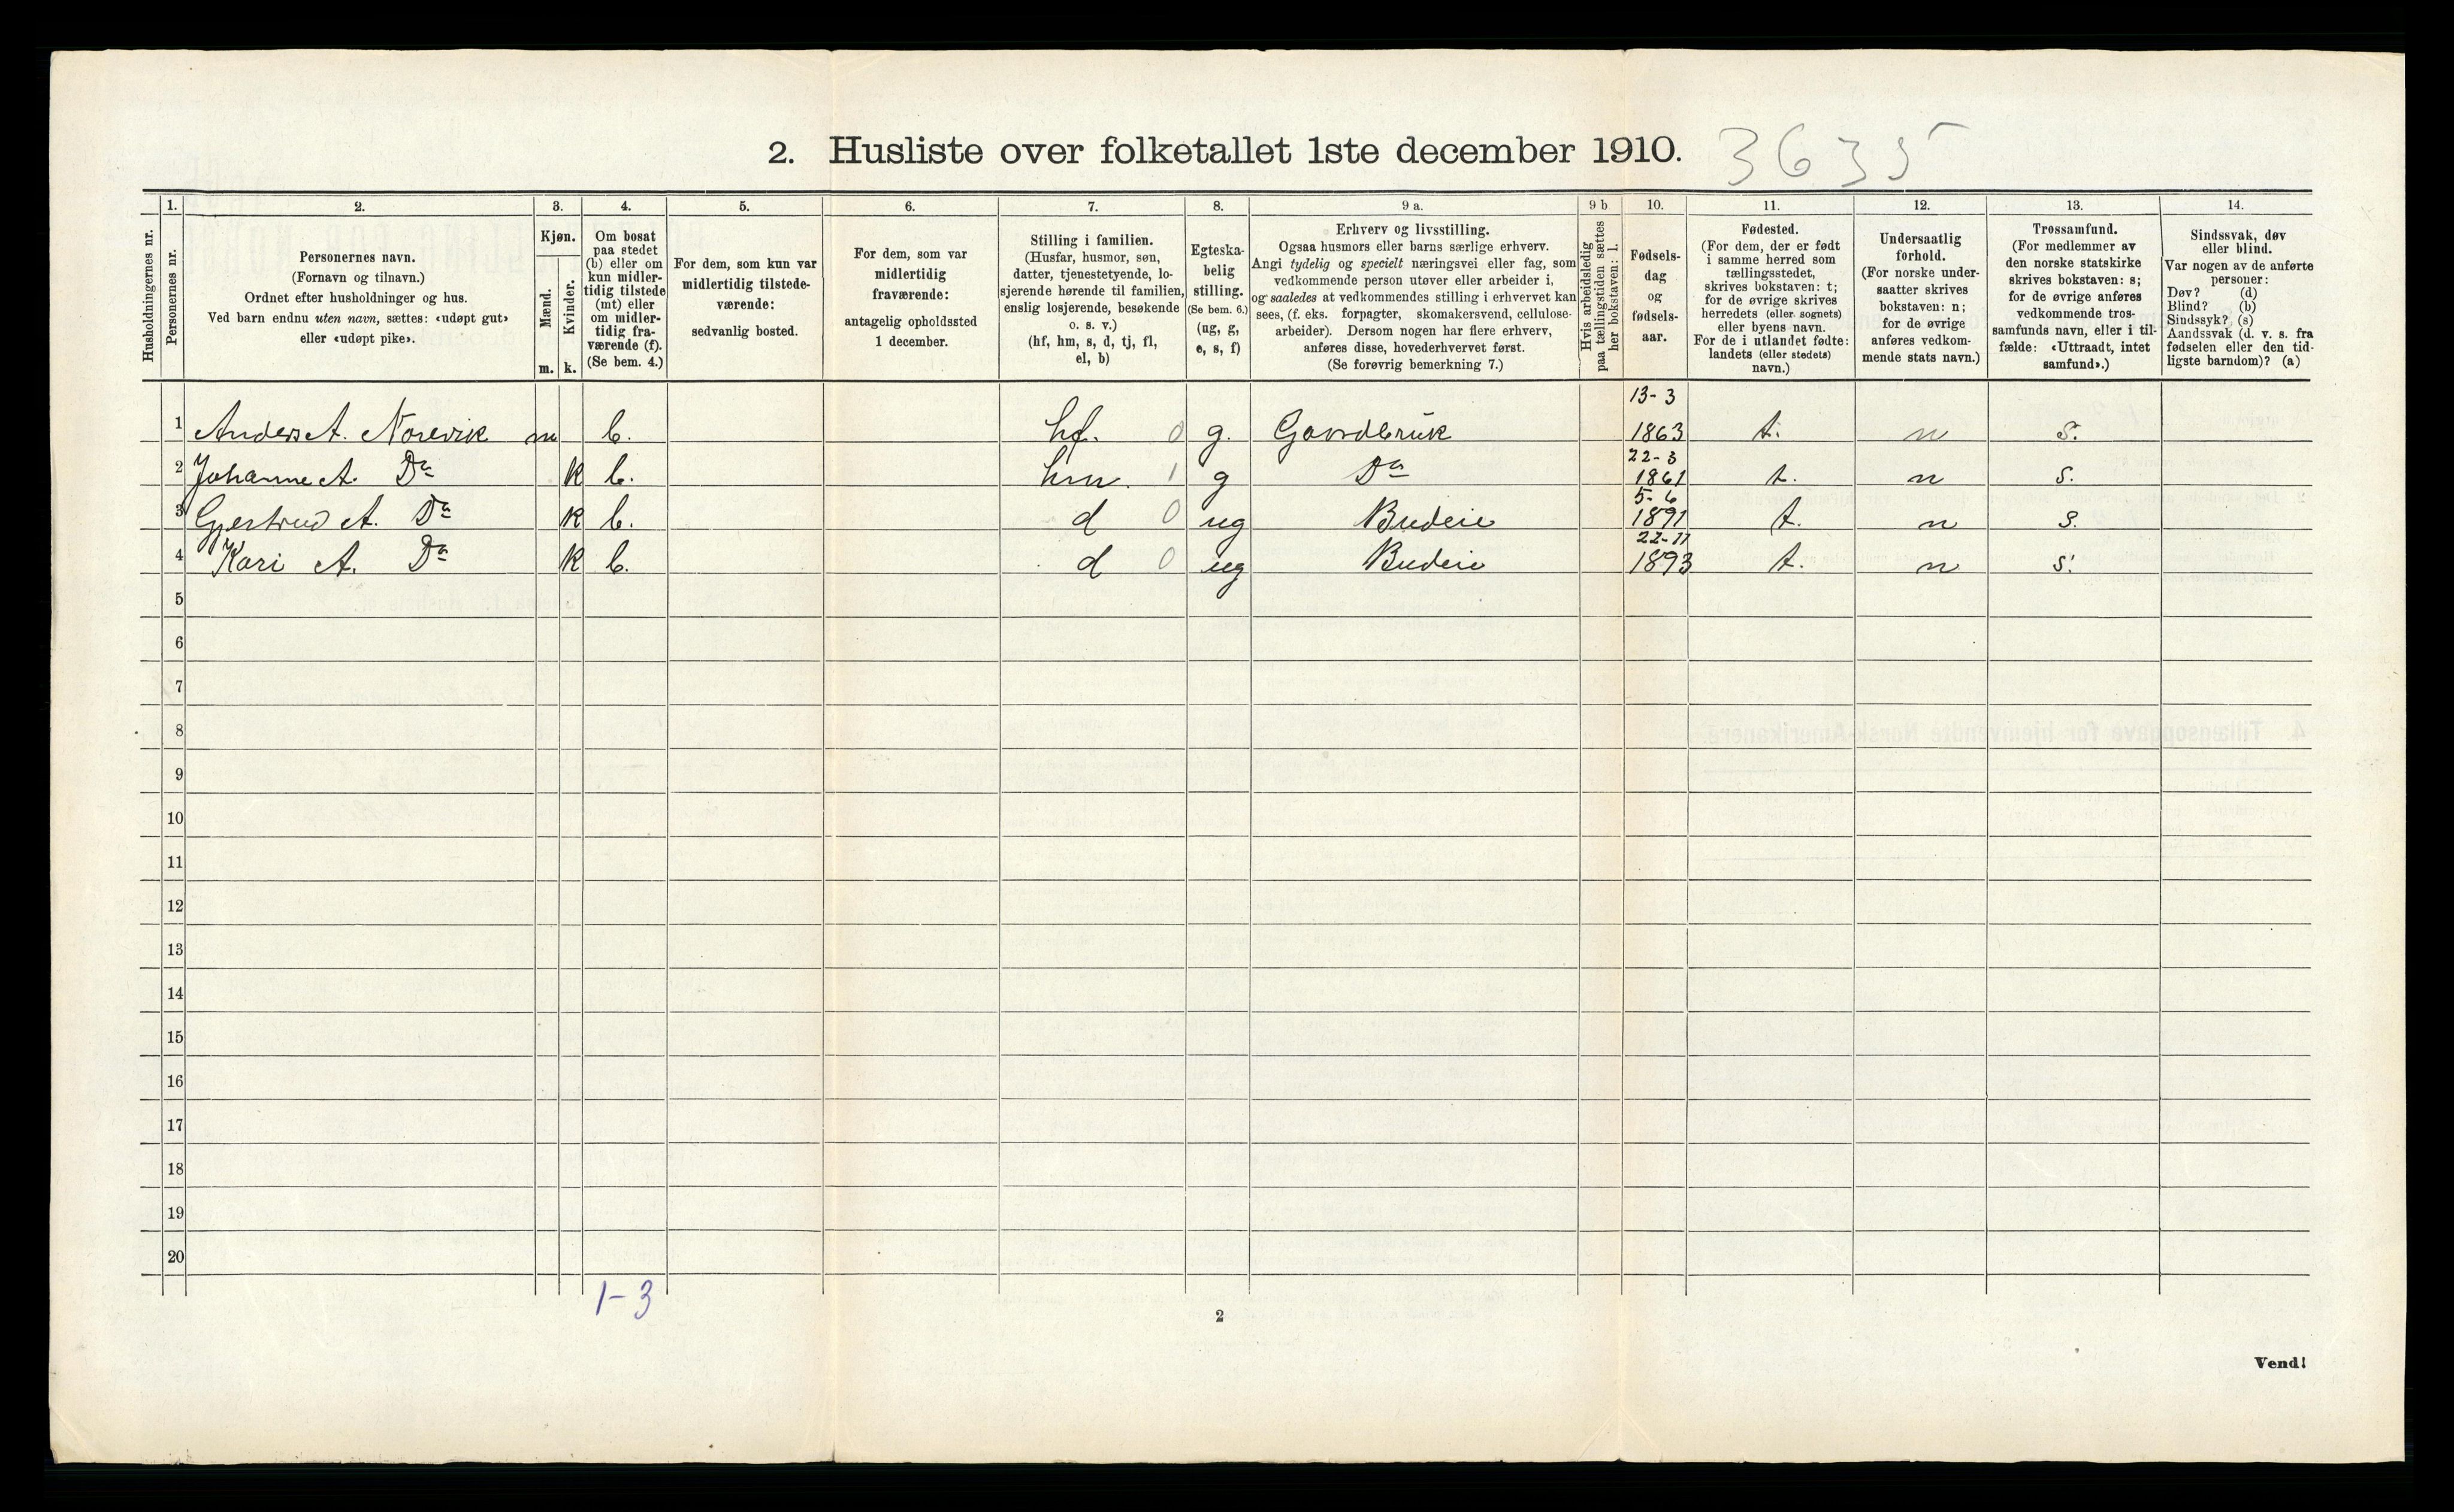 2. Husliste over folketallet 1ste december 1910. 3635
Husholdningernes nr.
1. Personernes nr.
2.
Personernes navn.
(Fornavn og tilnavn.)
Ordnet efter husholdninger og hus.
Ved barn endnu uten navn, sættes: «udøpt gut»
eller «udøpt pike».
3.
Kjøn.
Mænd. Kvinder.
m. k.
4.
Om bosat
paa stedet
(b) eller om
kun midler-
tidig tilstede
(mt) eller
om midler-
tidig fra-
værende (f).
(Se bem. 4.)
5.
For dem, som kun var
midlertidig tilstede-
værende:
sedvanlig bosted.
6.
For dem, som var
midlertidig
fraværende:
antagelig opholdssted
1 december.
7.
Stilling i familien.
(Husfar, husmor, søn,
datter, tjenestetyende, lo-
sjerende hørende til familien,
enslig losjerende, besøkende
o. s. v.)
(hf, hm, s, d, tj, fl,
el, b)
8.
Egteska-
belig
stilling.
(Se bem. 6.)
(ug, g,
e, s, f)
9 a.
Erhverv og livsstilling.
Ogsaa husmors eller barns særlige erhverv.
Angi tydelig og specielt næringsvei eller fag, som
vedkommende person utøver eller arbeider i,
og saaledes at vedkommendes stilling i erhvervet kan
sees, (f. eks. forpagter, skomakersvend, cellulose-
arbeider). Dersom nogen har flere erhverv,
anføres disse, hovederhvervet først.
(Se forøvrig bemerkning 7.)
9 b
Hvis arbeidsledig
paa tællingstiden sættes
her bokstaven: l.
10.
Fødsels-
dag
og
fødsels-
aar.
11.
Fødested.
(For dem, der er født
i samme herred som
tællingsstedet,
skrives bokstaven: t;
for de øvrige skrives
herredets (eller sognets)
eller byens navn.
For de i utlandet fødte:
landets (eller stedets)
navn.)
12.
Undersaatlig
forhold.
(For norske under-
saatter skrives
bokstaven: n;
for de øvrige
anføres vedkom-
mende stats navn.)
13.
Trossamfund.
(For medlemmer av
den norske statskirke
skrives bokstaven: s;
for de øvrige anføres
vedkommende tros-
samfunds navn, eller i til-
fælde: «Uttraadt, intet
samfund».)
14.
Sindssvak, døv
eller blind.
Var nogen av de anførte
personer:
Døv? (d)
Blind? (b)
Sindssyk? (s)
Aandssvak (d. v. s. fra
fødselen eller den tid-
ligste barndom)? (a)
1 Anders A. Norevik m b. hf. 0 g. Gaardbruk 13-3 1863 t. n s.
2 Johanne A. Do k b. hm. 1 g Do 22-3 1861 t. n s.
3 Gjertrud A. Do k b. d 0 ug Budeie 5-6 1891 t. n s.
4 Kari A. Do k b. d 0 ug Budeie 22-11 1893 t. n s.
5
6
7
8
9
10
11
12
13
14
15
16
17
18
19
20
1-3
2
Vend!